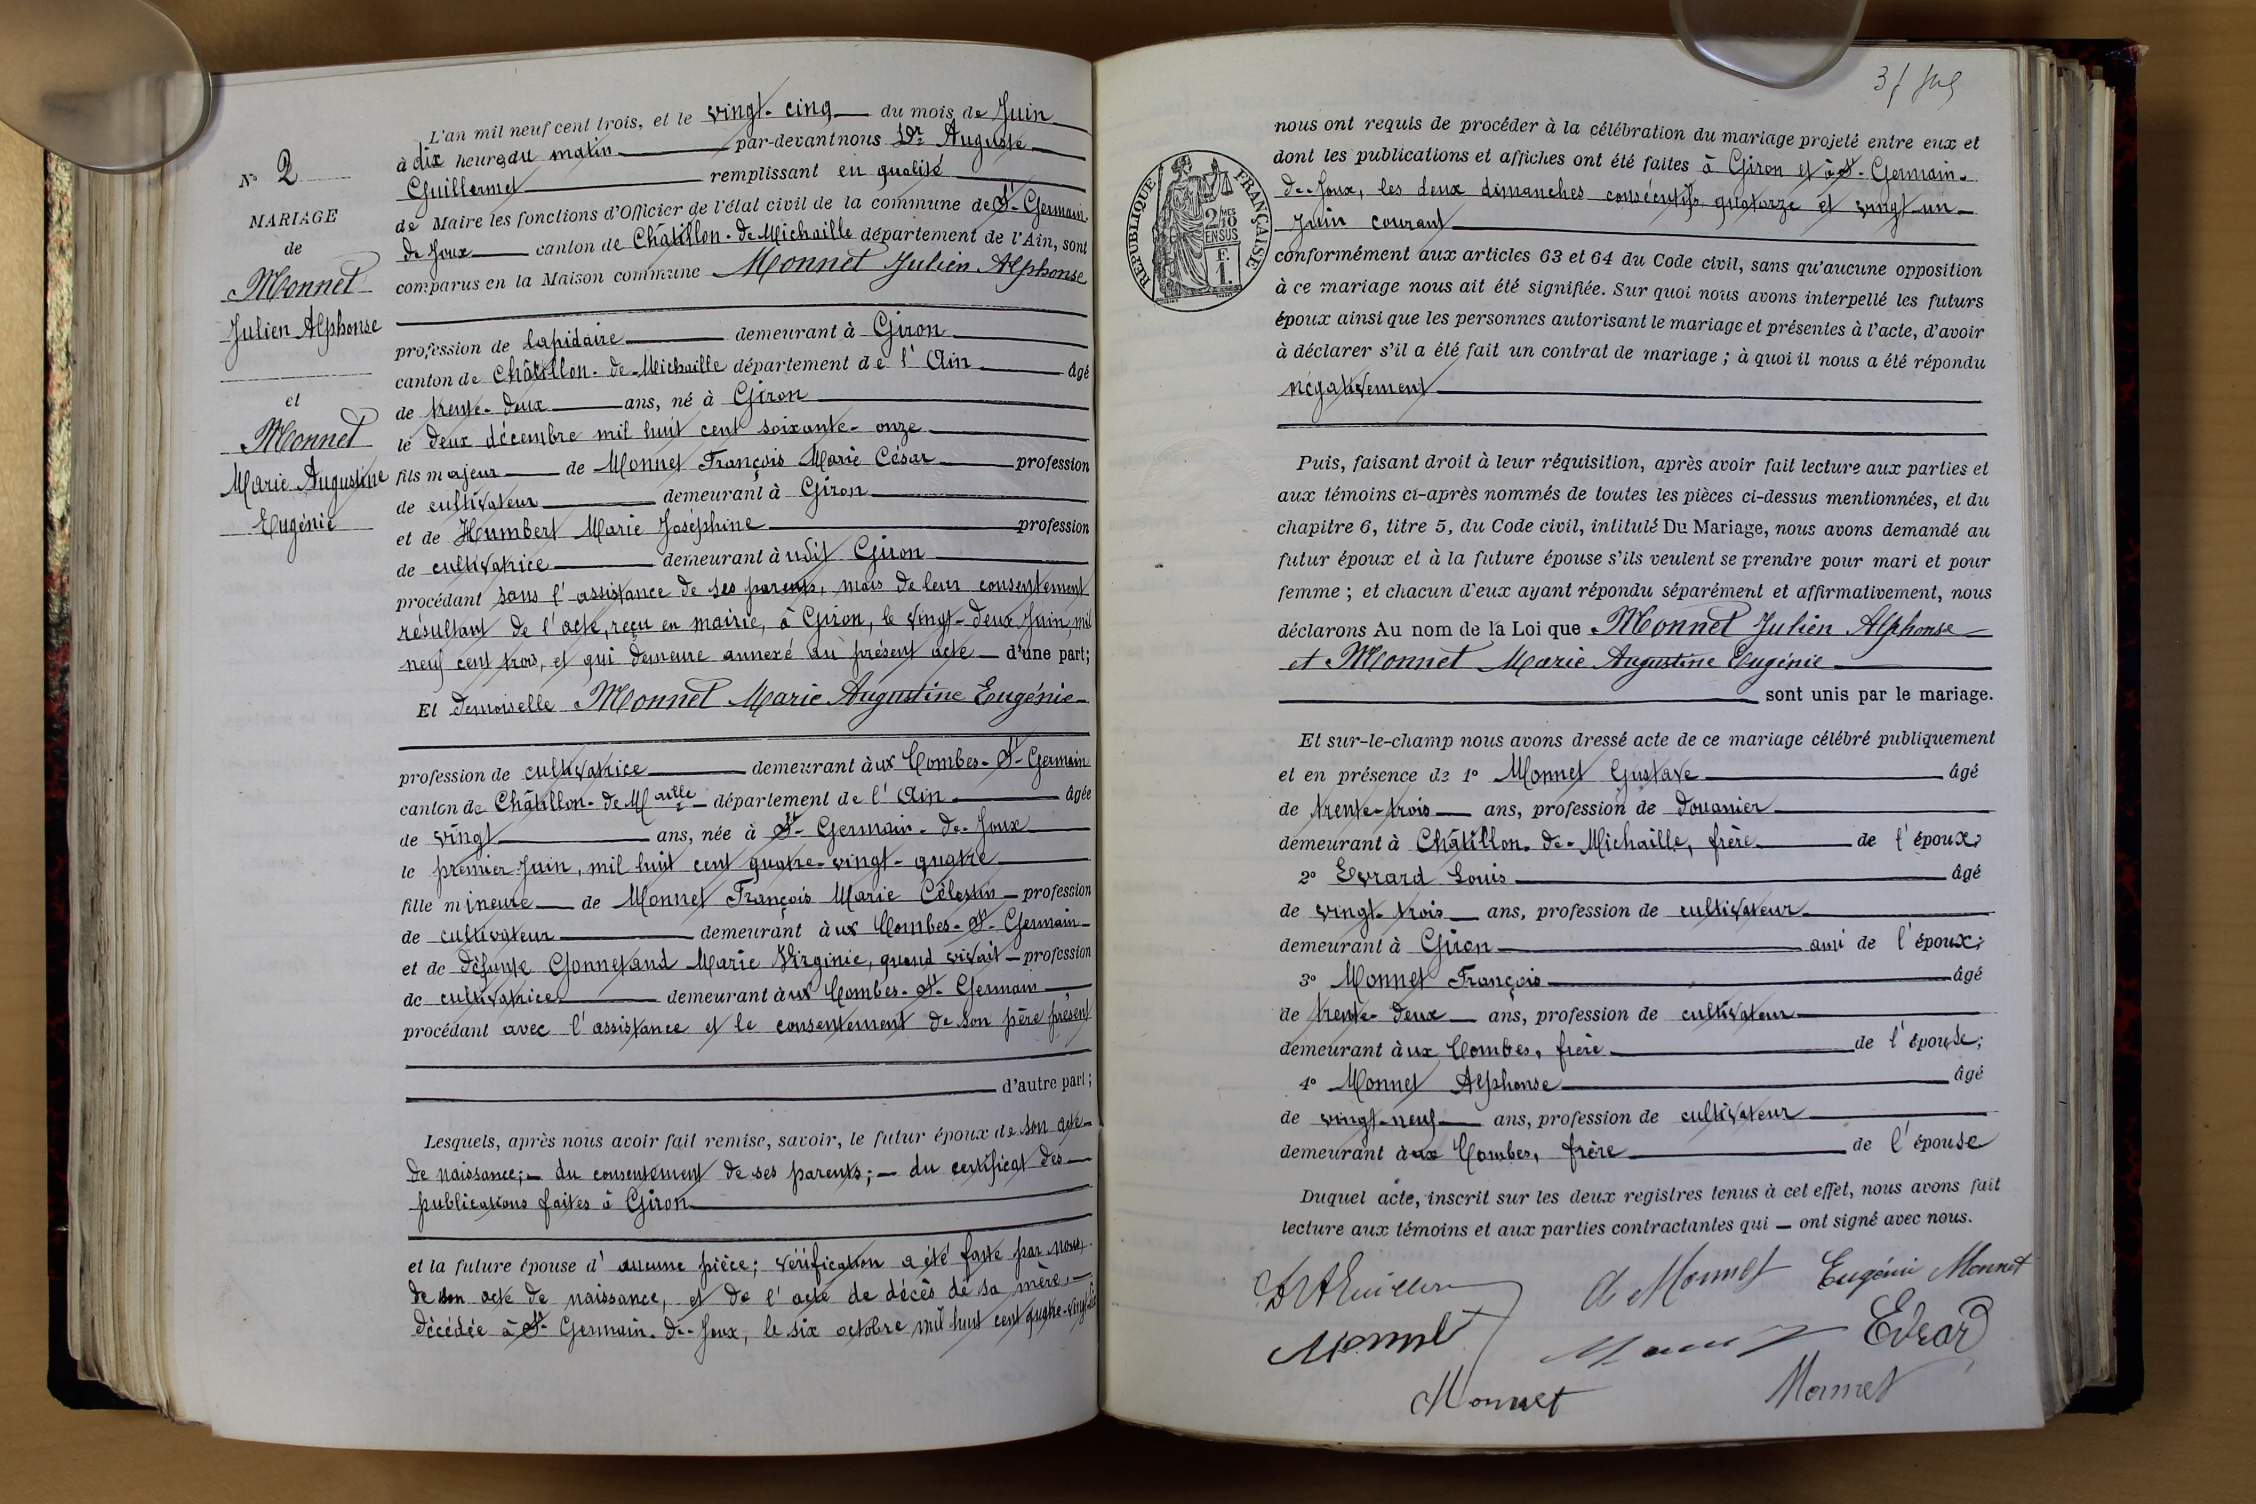 L'an mil neuf cent trois, et le vingt-cinq du mois de Juin
à dix heures du matin par-devant nous Dr Auguste
Guillermet remplissant en qualité
de Maire les fonctions d'Officier de l'état civil de la commune de St-Germain-
de-Joux canton de Châtillon-de-Michaille département de l'Ain, sont
comparus en la Maison commune Monnet Julien Alphonse
profession de lapidaire demeurant à Giron
canton de Châtillon-de-Michaille département de l'Ain âgé
de trente-deux ans, né à Giron
le deux décembre mil huit cent soixante-onze
fils majeur de Monnet François Marie César profession
de cultivateur demeurant à Giron
et de Humbert Marie Joséphine profession
de cultivatrice demeurant à udit Giron
procédant sans l'assistance de ses parents, mais de leur consentement
résultant de l'acte, reçu en mairie, à Giron, le vingt-deux Juin, mil
neuf cent trois, et qui demeure annexé au présent acte d'une part;
Et demoiselle Monnet Marie Augustine Eugénie
profession de cultivatrice demeurant àux Combes-St-Germain
canton de Châtillon-de-Maille département de l'Ain âgée
de vingt ans, née à St-Germain-de-Joux
le premier Juin, mil huit cent quatre-vingt-quatre
fille mineure de Monnet François Marie Célestin profession
de cultivateur demeurant àux Combes-St-Germain
et de défunte Gonnetand Marie Virginie, quand vivait profession
de cultivatrice demeurant àux Combes-St-Germain
procédant avec l'assistance et le consentement de son père présent
d'autre part;
Lesquels, après nous avoir fait remise, savoir, le futur époux de son acte
de naissance; du consentement de ses parents; du certificat des
publications faites à Giron
et la future épouse d'aucune pièce; vérification a été faite par nous,
de son acte de naissance, et de l'acte de décès de sa mère,
décédée à St-Germain-de-Joux, le six octobre mil huit cent quatre-vingt
No 2
MARIAGE
de
Monnet
Julien Alphonse
et
Monnet
Marie Augustine
Eugénie
RÉPUBLIQUE FRANÇAISE
2 MES
10
EN SUS
F.
1.
nous ont requis de procéder à la célébration du mariage projeté entre eux et
dont les publications et affiches ont été faites à Giron et à St-Germain-
de-Joux, les deux dimanches consécutifs quatorze et vingt-un
Juin courant
conformément aux articles 63 et 64 du Code civil, sans qu'aucune opposition
à ce mariage nous ait été signifiée. Sur quoi nous avons interpellé les futurs
époux ainsi que les personnes autorisant le mariage et présentes à l'acte, d'avoir
à déclarer s'il a été fait un contrat de mariage; à quoi il nous a été répondu
négativement
Puis, faisant droit à leur réquisition, après avoir fait lecture aux parties et
aux témoins ci-après nommés de toutes les pièces ci-dessus mentionnées, et du
chapitre 6, titre 5, du Code civil, intitulé Du Mariage, nous avons demandé au
futur époux et à la future épouse s'ils veulent se prendre pour mari et pour
femme; et chacun d'eux ayant répondu séparément et affirmativement, nous
déclarons Au nom de la Loi que Monnet Julien Alphonse
et Monnet Marie Augustine Eugénie
sont unis par le mariage.
Et sur-le-champ nous avons dressé acte de ce mariage célébré publiquement
et en présence de 1o Monnet Gustave âgé
de trente-trois ans, profession de douanier
demeurant à Châtillon-de-Michaille, frère de l'époux;
2o Evrard Louis âgé
de vingt-trois ans, profession de cultivateur
demeurant à Giron ami de l'époux;
3o Monnet François âgé
de trente-deux ans, profession de cultivateur
demeurant àux Combes, frère de l'épouse;
4o Monnet Alphonse âgé
de vingt-neuf ans, profession de cultivateur
demeurant àux Combes, frère de l'épouse
Duquel acte, inscrit sur les deux registres tenus à cet effet, nous avons fait
lecture aux témoins et aux parties contractantes qui ont signé avec nous.
A Monnet Eugénie Monnet
Monnet Evrard
Monnet Monnet